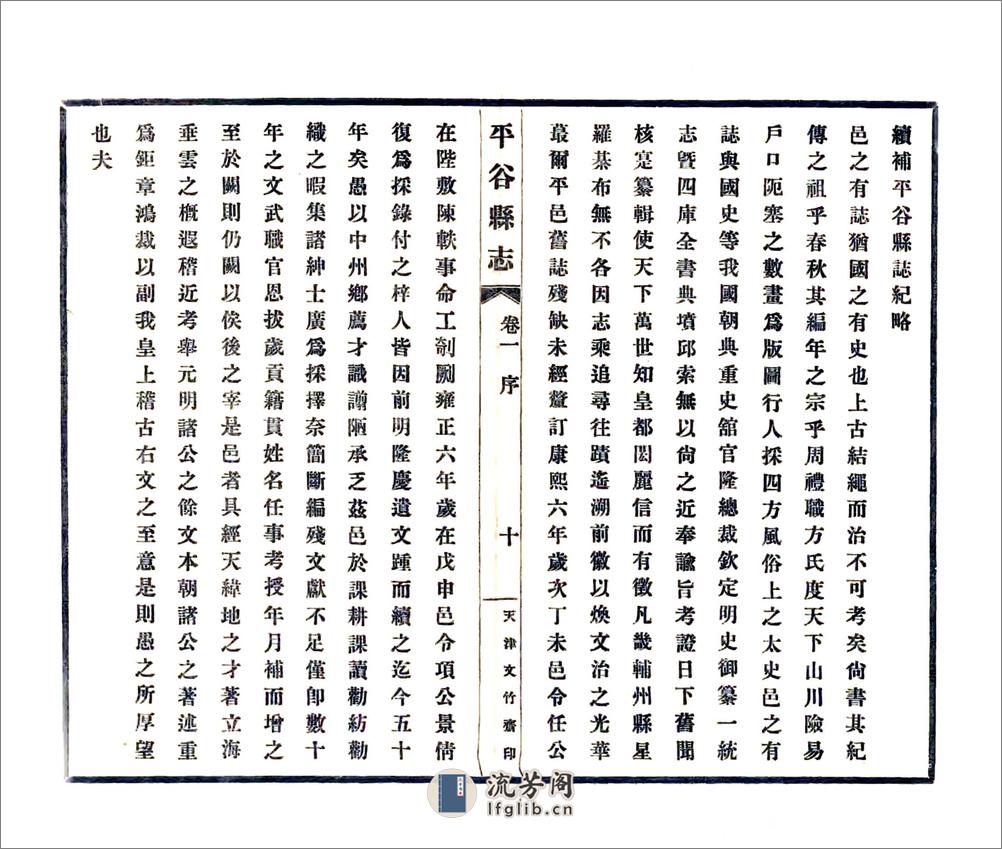 續補平谷縣誌紀略
邑之有誌猶國之有史也上古結繩而治不可考矣尙書其紀
傳之祖乎春秋其編年之宗乎周禮職方氏度天下山川險易
戶口阨塞之數畫爲版圖行人採四方風俗上之太史邑之有
誌與國史等我國朝典重史舘官隆總裁欽定明史御纂一統
志曁四庫全書典墳邱索無以尙之近奉諭旨考證日下舊聞
核寔纂輯使天下萬世知皇都閎麗信而有徵凡畿輔州縣星
羅棊布無不各因志乘追尋往蹟遙溯前徽以煥文治之光華
蕞爾平邑舊誌殘缺未經釐訂康熙六年歲次丁未邑令任公
平谷縣志
卷一 序
十
天津文竹齋印
在陛敷陳軼事命工剞劂雍正六年歲在戊申邑令項公景倩
復爲採錄付之梓人皆因前明隆慶遺文踵而續之迄今五十
年矣愚以中州鄉薦才識謭陋承乏茲邑於課耕課讀勸紡勸
織之暇集諸紳士廣爲採擇奈簡斷編殘文獻不足僅卽數十
年之文武職官恩拔歲貢籍貫姓名任事考授年月補而增之
至於闕則仍闕以俟後之宰是邑者具經天緯地之才著立海
垂雲之槪遐稽近考舉元明諸公之餘文本朝諸公之著述重
爲鉅章鴻裁以副我皇上稽古右文之至意是則愚之所厚望
也夫
流芳阁
lfglib.cn